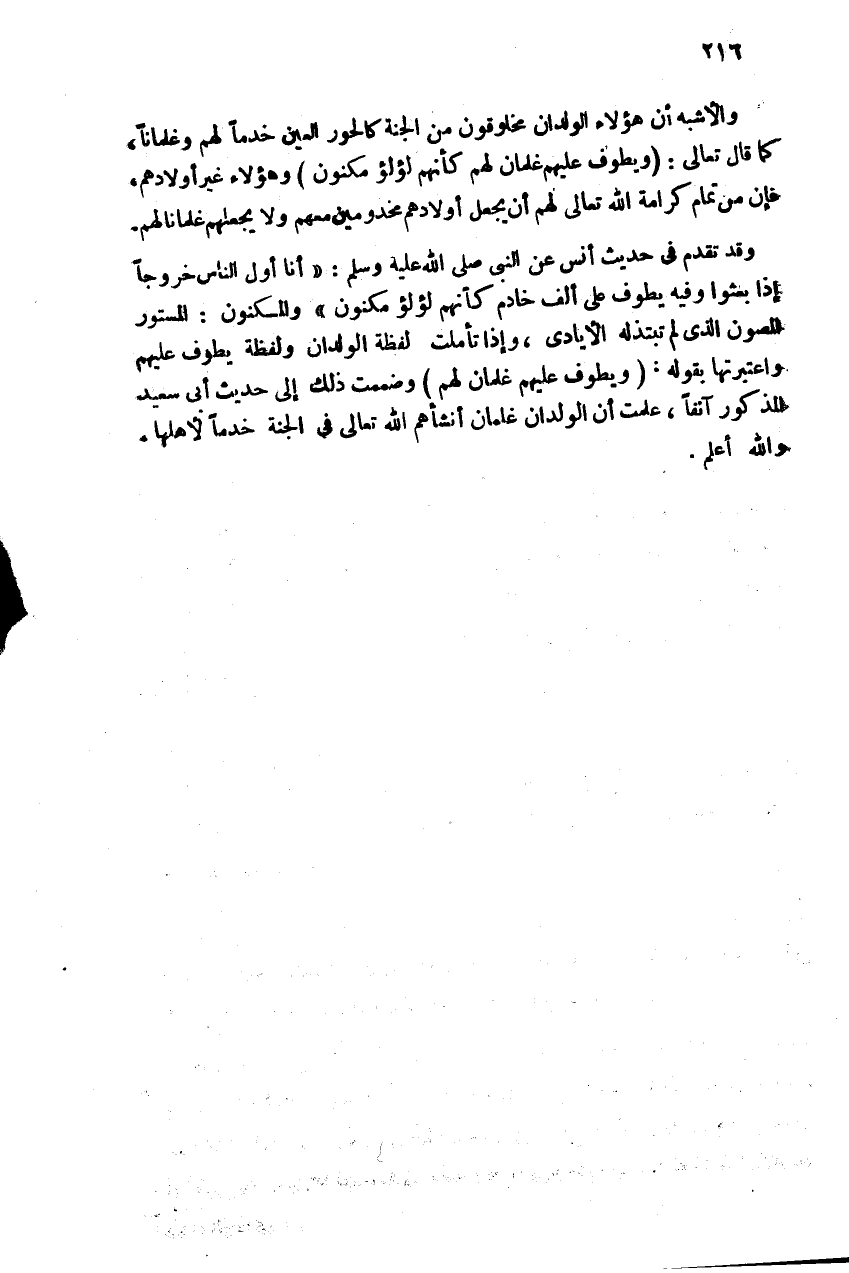 ٢١٦
والأشبه أن هؤلاء الولدان مخلوقون من الجنة كالحور العين خدماً لهم وغلماناً،
كما قال تعالى : (ويطوف عليهم غلمان لهم كأنهم لؤلؤ مكنون ) وهؤلاء غير أولادهم.
فإن من تمام كرامة الله تعالى لهم أن يجعل أولادهم مخدومين معهم ولا يجعلهم غلمانا لهم.
وقد تقدم فى حديث أنس عن النبى صلى الله علية وسلم : « أنا أول الناس خروجاً
إذا بعثوا وفيه يطوف على ألف خادم كأنهم لؤلؤ مكنون » والمكنون : المستور
المصون الذى لم تبتذله الأيادى ، وإذا تأملت لفظة الولدان ولفظة يطوف عليهم
واعتبرتها بقوله : ( ويطوف عليهم غلمان لهم ) وضممت ذلك إلى حديث أبى سعيد
المذكور آنفاً ، علمت أن الولدان غلمان أنشأهم الله تعالى في الجنة خدماً لأهلها .
والله أعلم .